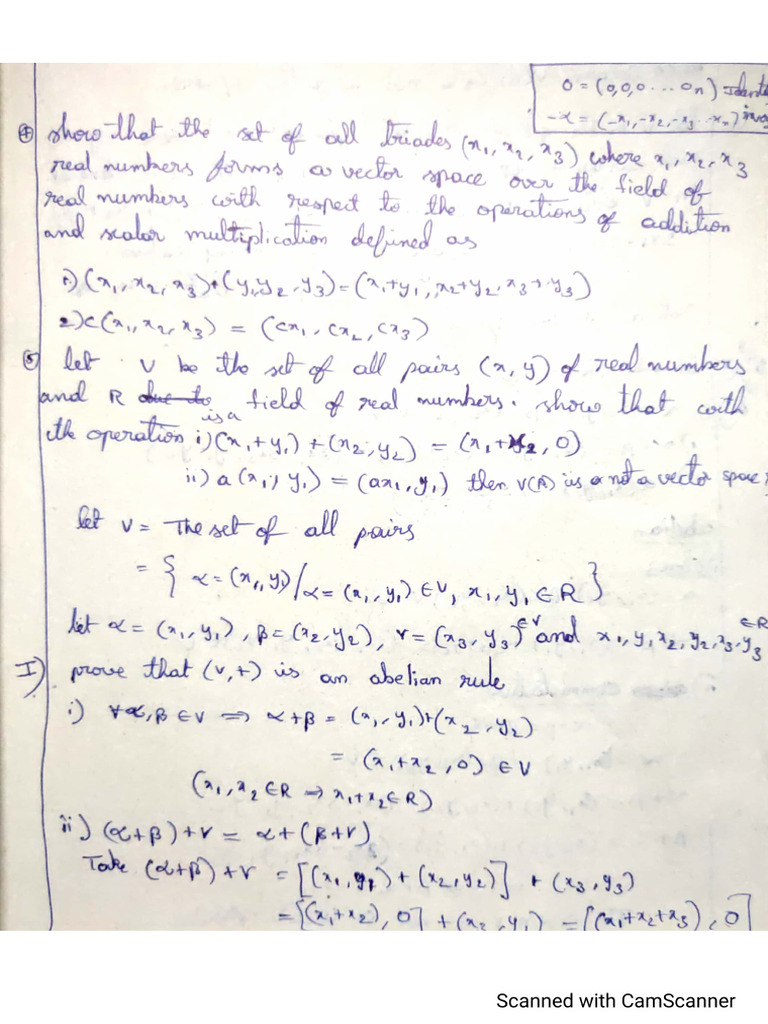 0 = (0,0,0 ... 0n)
-x = (-x1, -x2, -x3 .. -xn)
④ show that the set of all triades (x1, x2, x3) where x1, x2, x3
real numbers forms a vector space over the field of
real numbers with respect to the operations of addition
and scalar multiplication defined as
1) (x1, x2, x3)+(y1, y2, y3) = (x1+y1, x2+y2, x3+y3)
2) c(x1, x2, x3) = (cx1, cx2, cx3)
⑤ let V be the set of all pairs (x, y) of real numbers
and R is a field of real numbers. show that with
the operation i) (x1+y1)+(x2, y2) = (x1+x2, 0)
ii) a(x1, y1) = (ax1, y1) then V(R) is not a vector space
let V = The set of all pairs
= { α = (x1, y1) / α = (x1, y1) ∈ V, x1, y1 ∈ R }
let α = (x1, y1), β = (x2, y2), γ = (x3, y3) ∈V and x1, y1, x2, y2, x3, y3 ∈R
I) prove that (V,+) is an abelian rule
i) ∀ α, β ∈ V ⇒ α+β = (x1, y1)+(x2, y2)
= (x1+x2, 0) ∈ V
(x1, x2 ∈ R ⇒ x1+x2 ∈ R)
ii) (α+β)+γ = α+(β+γ)
Take (α+β)+γ = [(x1, y1) + (x2, y2)] + (x3, y3)
= [(x1+x2), 0] + (x3, y3) = [(x1+x2+x3), 0]
Scanned with CamScanner